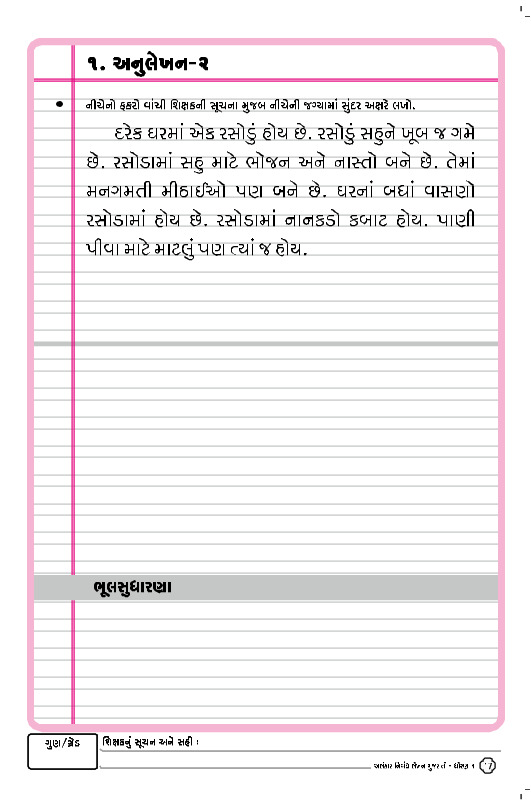 ૧. અનુલેખન-૨
● નીચેનો ફકરો વાંચી શિક્ષકની સૂચના મુજબ નીચેની જગ્યામાં સુંદર અક્ષરે લખો.
દરેક ઘરમાં એક રસોડું હોય છે. રસોડું સહુને ખૂબ જ ગમે
છે. રસોડામાં સહુ માટે ભોજન અને નાસ્તો બને છે. તેમાં
મનગમતી મીઠાઈઓ પણ બને છે. ઘરનાં બધાં વાસણો
રસોડામાં હોય છે. રસોડામાં નાનકડો કબાટ હોય. પાણી
પીવા માટે માટલું પણ ત્યાં જ હોય.
ભૂલસુધારણા
ગુણ/ગ્રેડ
શિક્ષકનું સૂચન અને સહી :
નિબંધ લેખન ગુજરાતી - ધોરણ